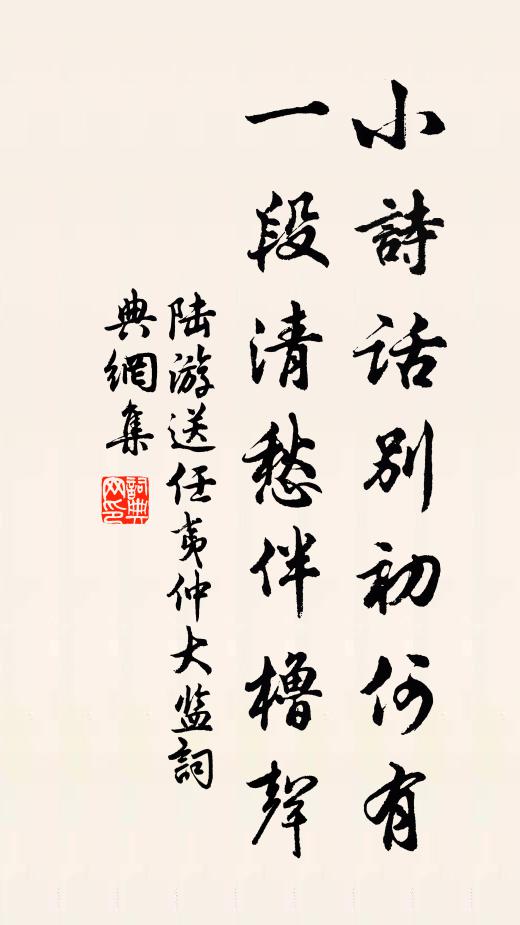 小詩話別初何有
一段清愁伴櫓聲
陆游送任夷仲大监詞
典網集
詞典
网印